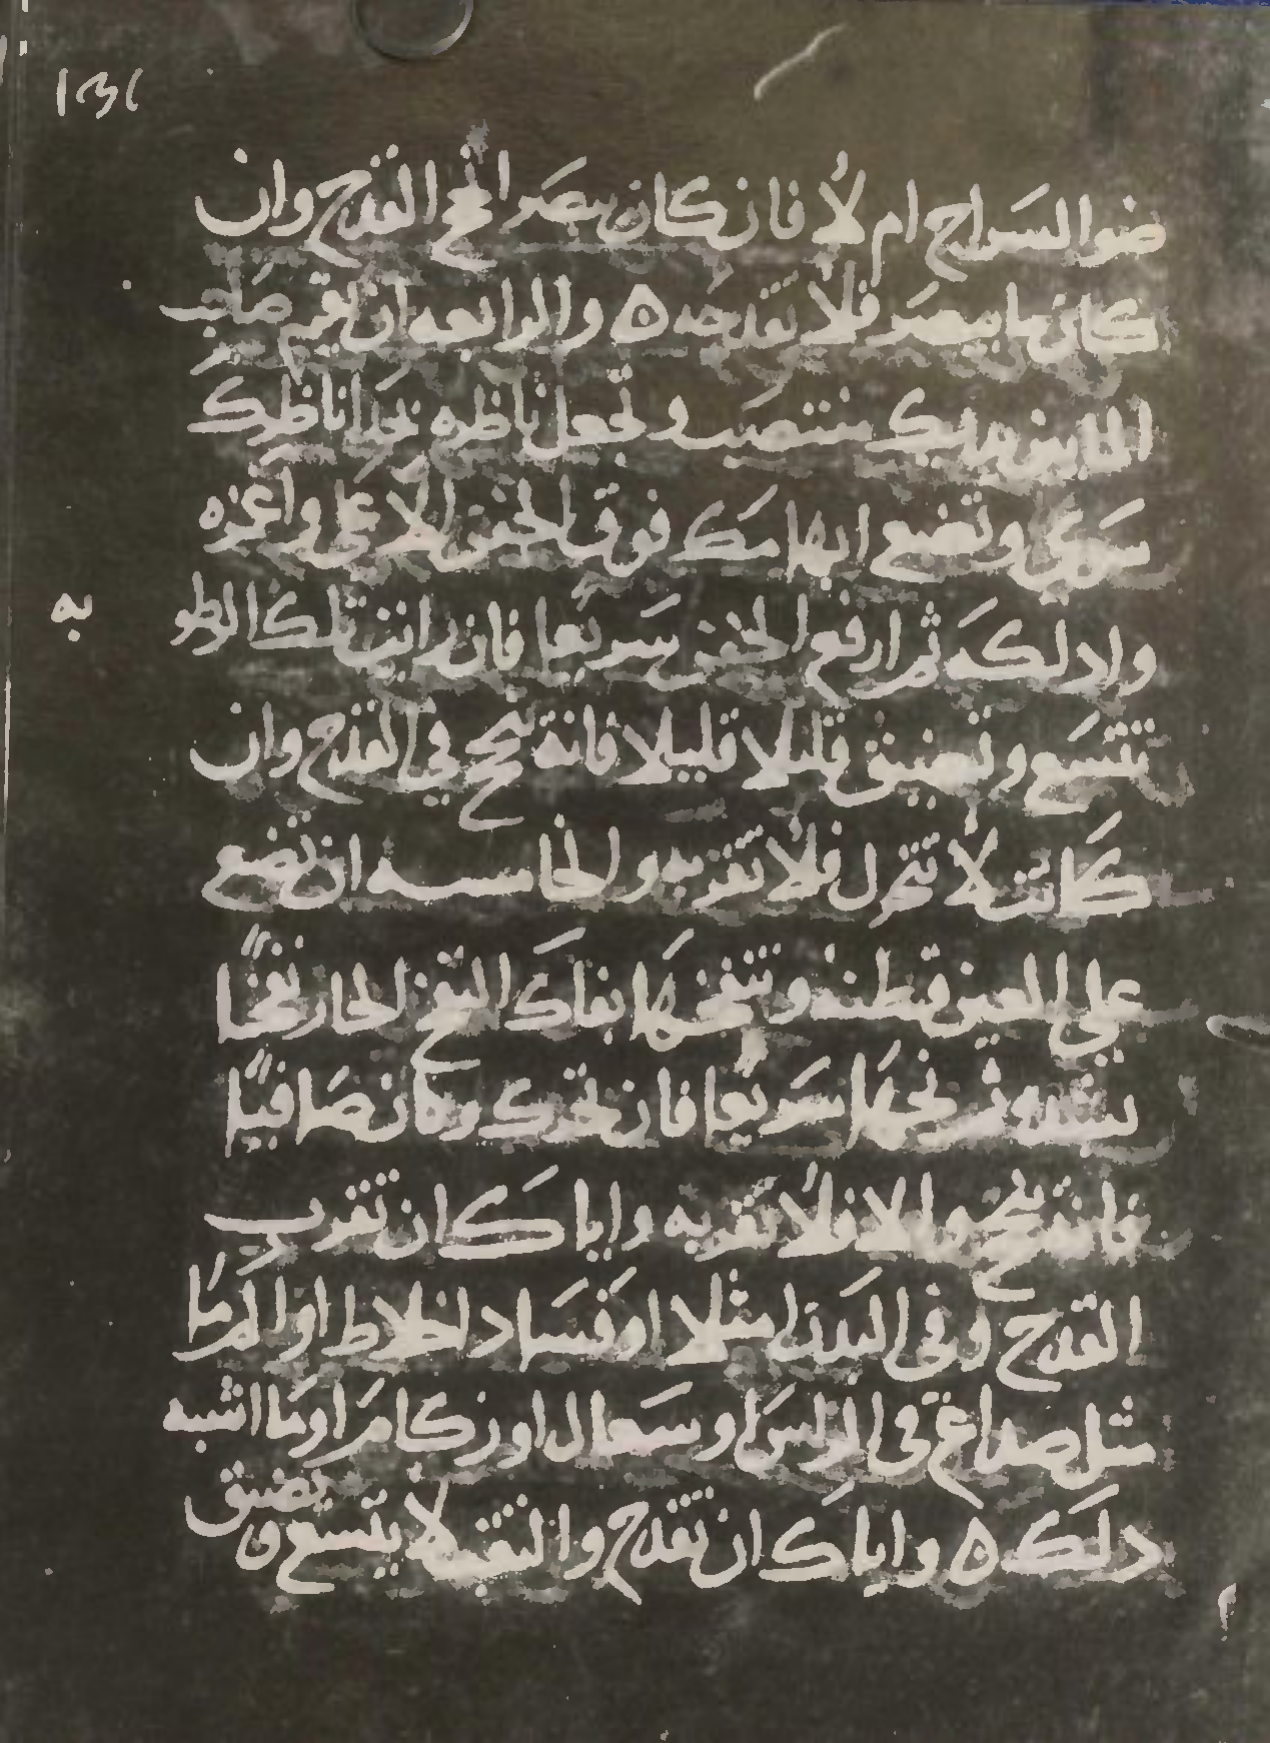 ضوا السراج ام لا فان كان يبصر انجح القدح وان
كان ما يبصر فلا تقدحه ه والرابعه ان تقيم صاحب
الما بين يديك منتصب وتجعل ناظره بحذا ناظرك
سوى وتضع ابهامك فوق الجفن الاعلى واغمزه
وادلكه ثم ارفع الجفن سريعا فان رايت تلك الرطو
به
تتسع وتضيق قليلا قليلا فانه ينجح في القدح وان
كانت لا تتحرك فلا تقربه والخامسه ان تضع
على العين قطنه وتنفخها بفاك النفخ الحار نفخًا
بشده ثم نحها سريعا فان تحرك وكان صافيًا
فانه ينجح والا فلا تقربه واياك ان تقرب
القدح وفي البدن امتلا او فساد اخلاط او الم ما
مثل صداع في الراس او سعال او زكام او ما اشبه
ذلك ه واياك ان تقدح والثقب لا يتسع و
يضيق